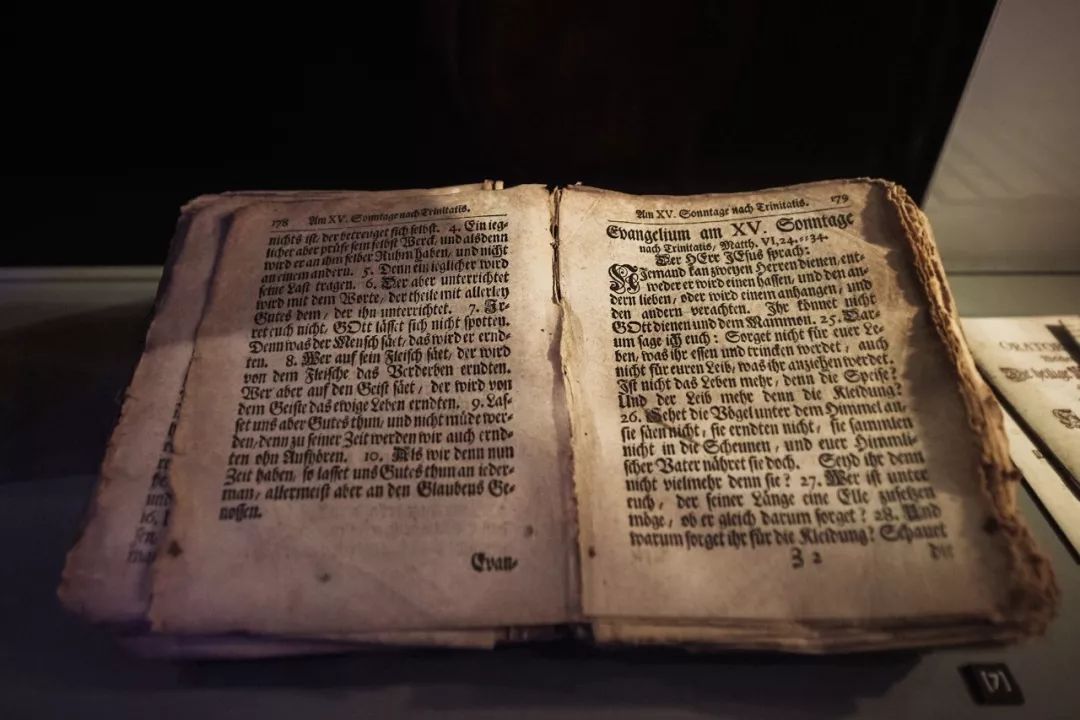 178 Am XV. Sonntage nach Trinitatis.
nichts ist, der betreuget sich selbst. 4. Ein ieg-
licher aber prüfe sein selbst Werck, und alsdenn
wird er an ihm selber Ruhm haben, und nicht
an einem andern. 5. Denn ein ieglicher wird
seine Last tragen. 6. Der aber unterrichtet
wird mit dem Worte, der theile mit allerley
Gutes dem, der ihn unterrichtet. 7. Ir-
ret euch nicht, GOtt lässet sich nicht spotten.
Denn was der Mensch säet, das wird er ernd-
ten. 8. Wer auf sein Fleisch säet, der wird
von dem Fleische das Verderben erndten.
Wer aber auf den Geist säet, der wird von
dem Geiste das ewige Leben erndten. 9. Las-
set uns aber Gutes thun, und nicht müde wer-
den, denn zu seiner Zeit werden wir auch ernd-
ten ohn Aufhören. 10. Als wir denn nun
Zeit haben, so lasset uns Gutes thun an ieder-
man, allermeist aber an den Glaubens Ge-
nossen.
Evan-
Am XV. Sonntage nach Trinitatis. 179
Evangelium am XV. Sonntage
nach Trinitatis, Matth. VI, 24.--34.
Der HErr JEsus sprach:
Niemand kan zweyen Herren dienen, ent-
weder er wird einen hassen, und den an-
dern lieben, oder wird einem anhangen, und
den andern verachten. Ihr könnet nicht
GOtt dienen und dem Mammon. 25. Dar-
um sage ich euch: Sorget nicht für euer Le-
ben, was ihr essen und trincken werdet, auch
nicht für euren Leib, was ihr anziehen werdet.
Ist nicht das Leben mehr, denn die Speise?
Und der Leib mehr denn die Kleidung?
26. Sehet die Vögel unter dem Himmel an,
sie säen nicht, sie erndten nicht, sie sammlen
nicht in die Scheunen, und euer Himmli-
scher Vater nähret sie doch. Seyd ihr denn
nicht vielmehr denn sie? 27. Wer ist unter
euch, der seiner Länge eine Elle zusetzen
möge, ob er gleich darum sorget? 28. Und
warum sorget ihr für die Kleidung? Schauet
3 2 die
ORATOR
[7]